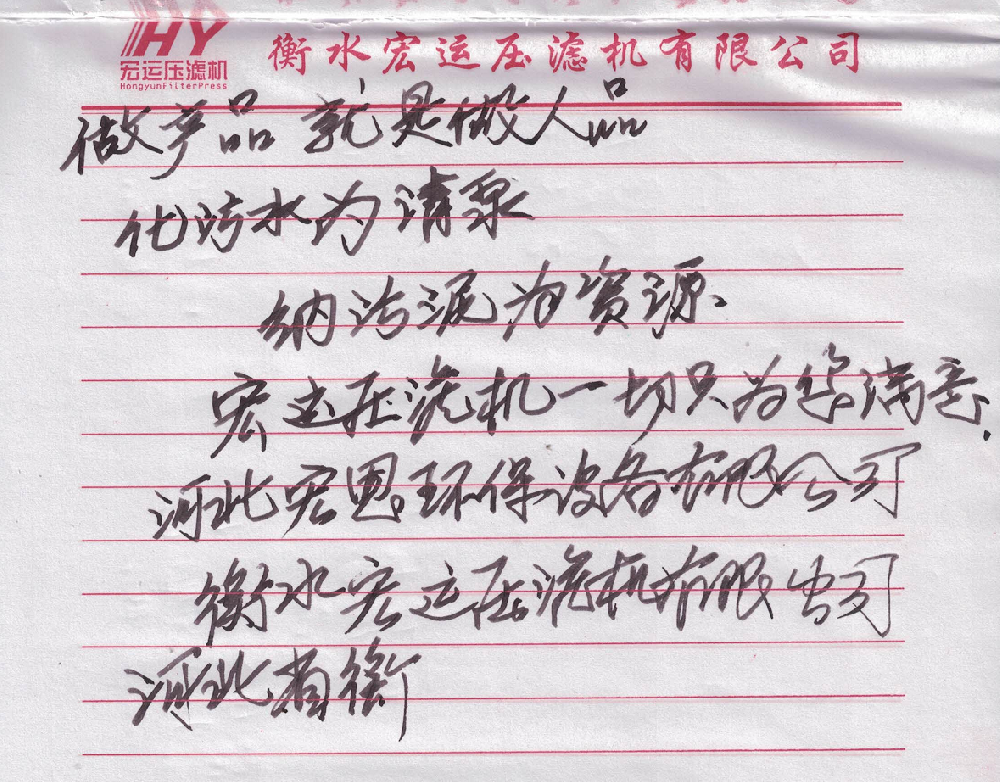 HY
宏运压滤机
HongyunFilterPress
衡水宏运压滤机有限公司
做产品就是做人品
化污水为清泉
纳污泥为资源、
宏运压滤机一切只为您满意.
河北宏恩环保设备有限公司
衡水宏运压滤机有限公司
河北省衡